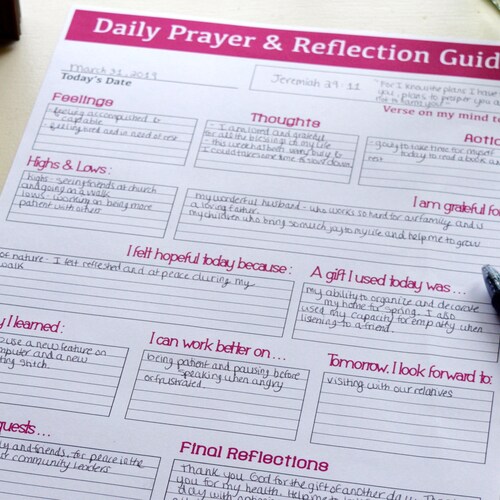 Daily Prayer & Reflection Guid
March 31, 2019
Today's Date
Jeremiah 39:11
"For I know the plans I have
you, plans to prosper you a
not to harm you"
Verse on my mind to
Feelings
feeling accomplished &
capable
feeling tired and in need of rest
Thoughts
- I am loved and grateful
for all the blessings of my life
- this week has been very busy &
I could take some time to slow down
Actio
- going to take time for myself
today to read a book a
rest
Highs & Lows:
highs - seeing friends at church
and going on a walk
lows - working on being more
patient with others
I am grateful fo
my wonderful husband - who works so hard for our family and is
a loving father.
my children who bring so much joy to my life and help me to grow
I felt hopeful today because:
of nature - I felt refreshed and at peace during my
walk
A gift I used today was...
my ability to organize and decorate
my home for spring. I also
used my capacity for empathy when
listening to a friend.
y I learned:
o use a new feature on
mputer and a new
ting stitch.
I can work better on...
being patient and pausing before
speaking when angry
or frustrated.
Tomorrow, I look forward to:
visiting with our relatives
quests...
ly and friends, for peace in the
r community leaders
Final Reflections
Thank you God for the gift of another day, than
you for my health. Help me to
day with